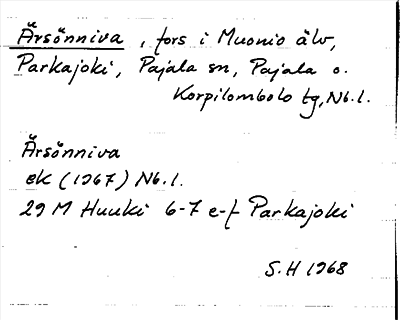 Ärsönniva, fors i Muonio älv,
Parkajoki, Pajala sn, Pajala o.
Korpilombolo tg, Nb.l.
Ärsönniva
ek (1967) Nb.l.
29 M Huuki 6-7 e-f Parkajoki
S.H 1968